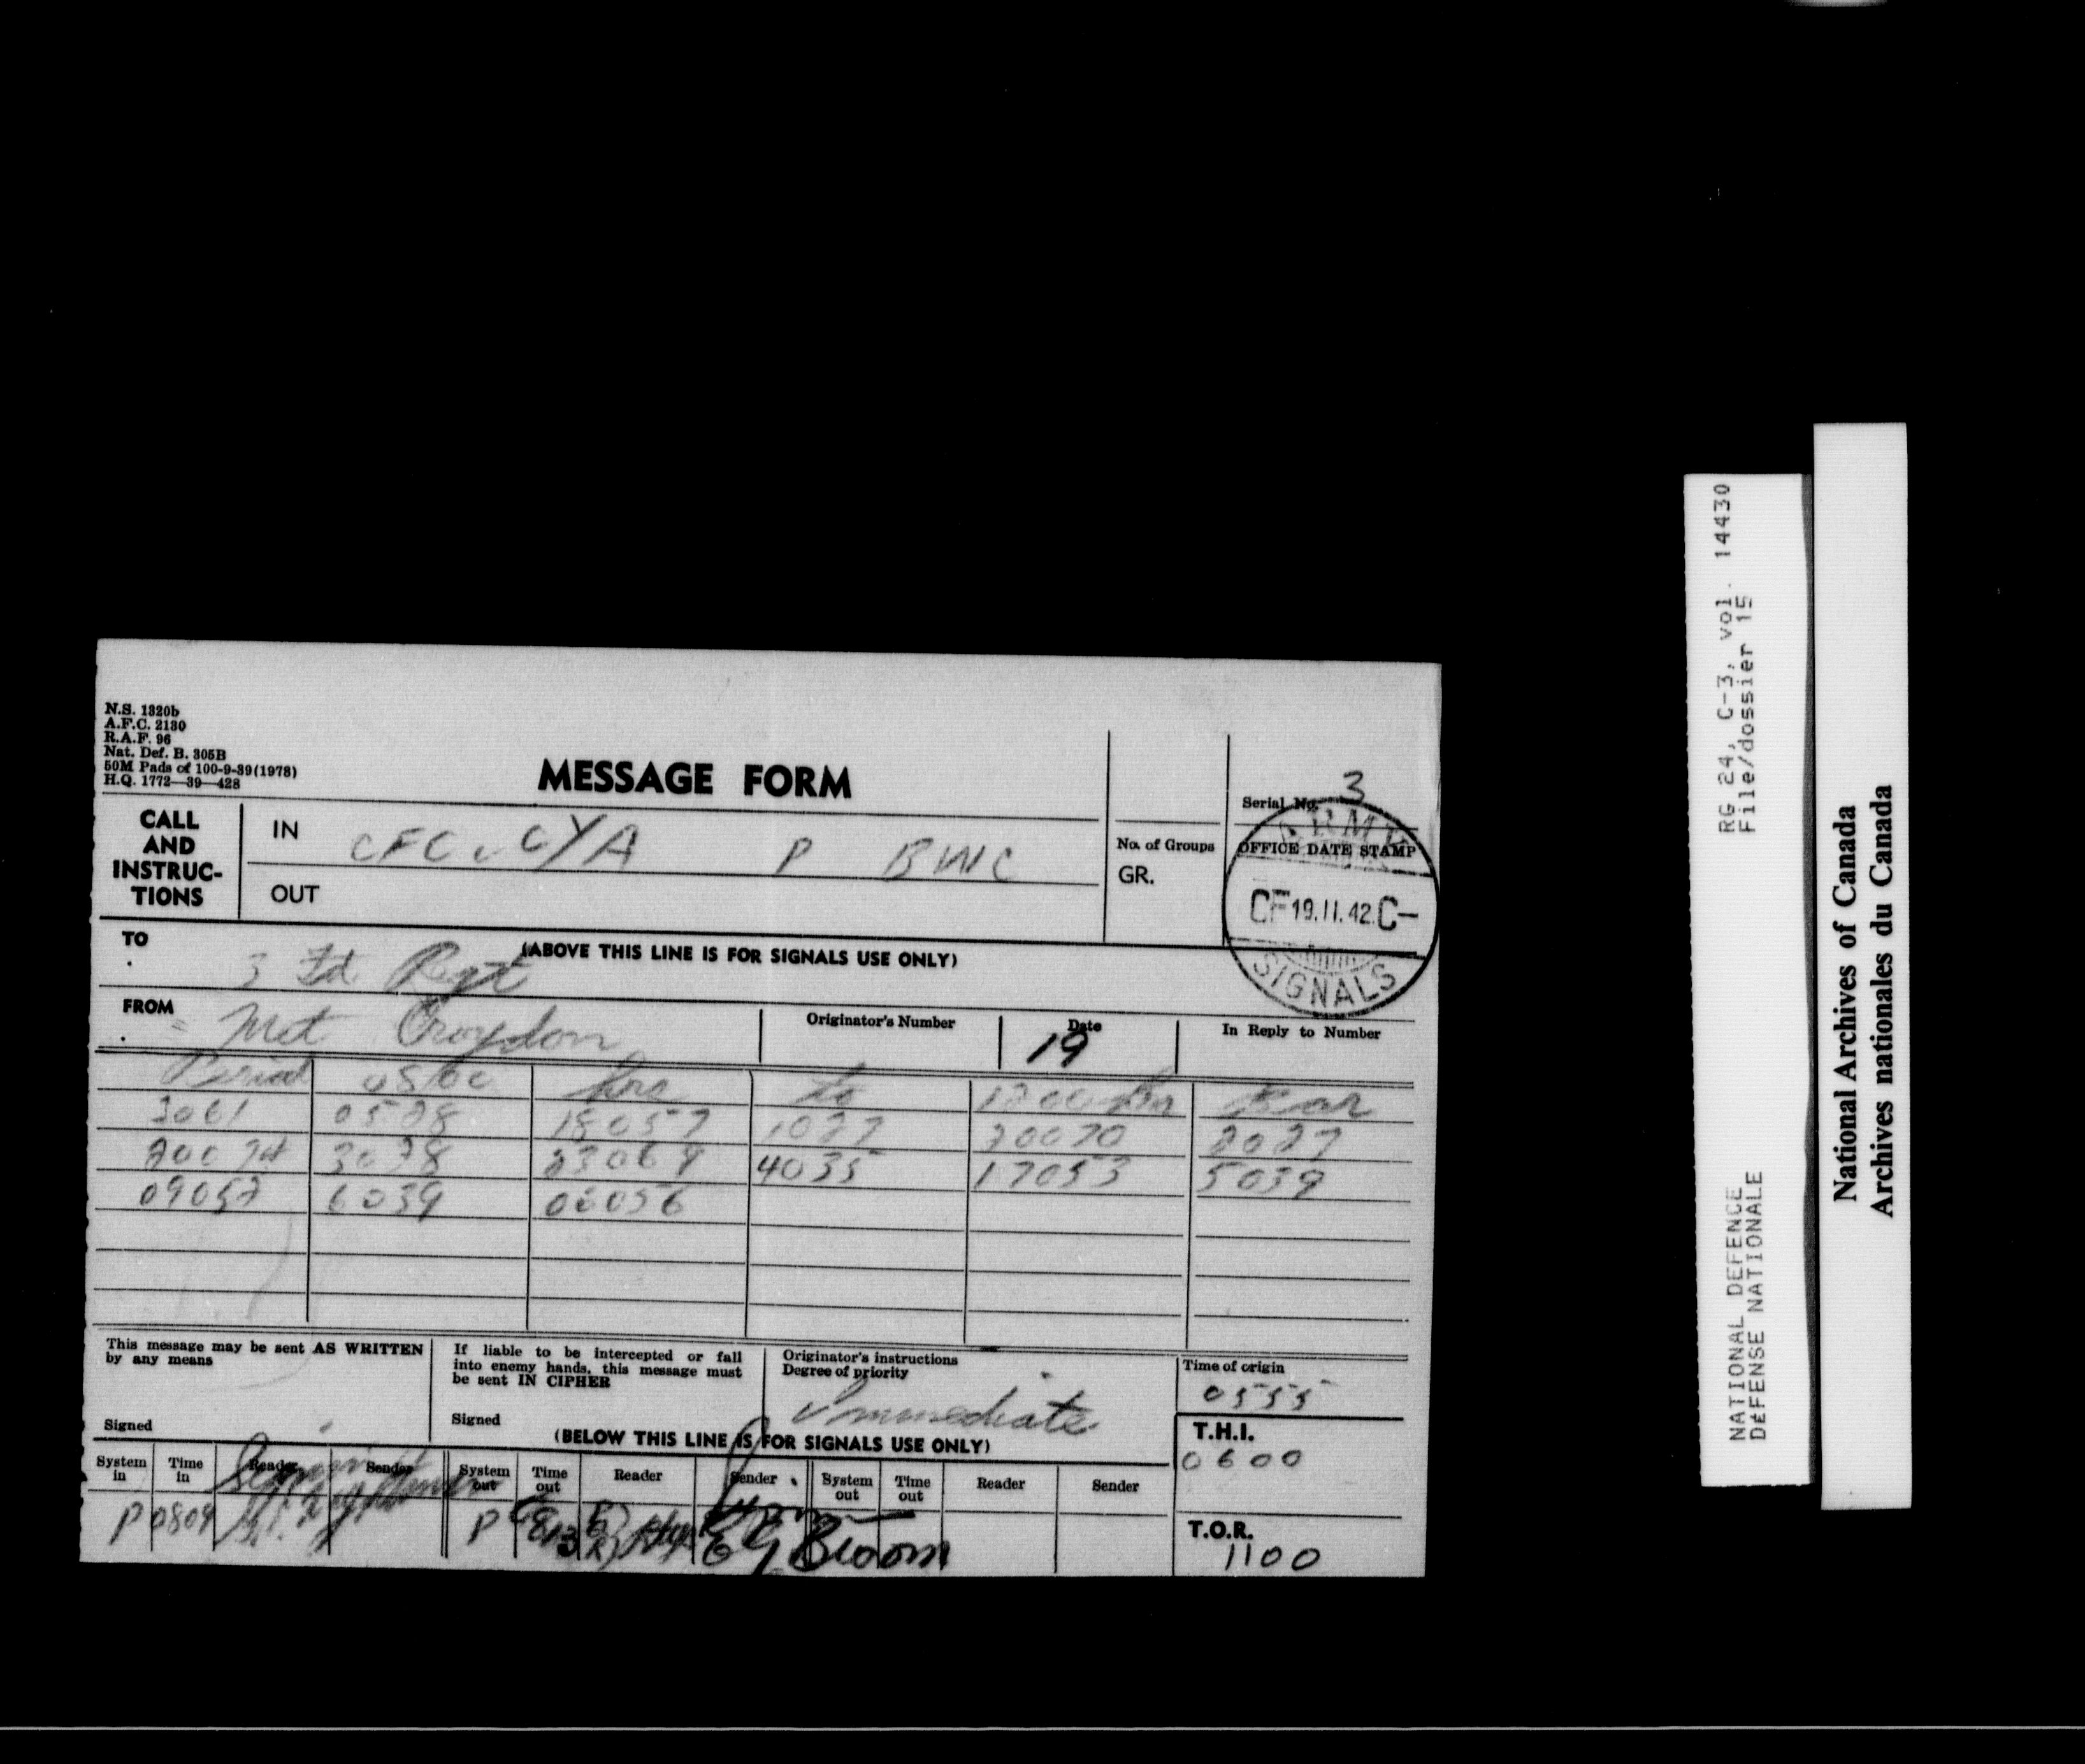 N.S. 1320b
A.F.C. 2130
R.A.F. 96
Nat. Def. B. 305B
50M Pads of 100-9-39(1978)
H.Q. 1772—39—428
MESSAGE FORM
Serial No. 3
CALL AND INSTRUC-TIONS
IN CFC v CYA P BWC
OUT
No. of Groups
GR.
OFFICE DATE STAMP
ARMY
CF 19.11.42 C-
SIGNALS
(ABOVE THIS LINE IS FOR SIGNALS USE ONLY)
TO 3 Fd Regt
FROM Met Croydon
Originator's Number
Date 19
In Reply to Number
Period hrs to Bar
3061 18057 1027 20070 2027
3028 23069 4035 17053 5039
09057 6039 06056
This message may be sent AS WRITTEN
by any means
Signed
If liable to be intercepted or fall
into enemy hands, this message must
be sent IN CIPHER
Signed
Originator's instructions
Degree of priority
Immediate
Time of origin
0555
(BELOW THIS LINE IS FOR SIGNALS USE ONLY)
T.H.I.
0600
System in Time in Reader Sender System out Time out Reader Sender System out Time out Reader Sender
P 0809 P
T.O.R.
1100
RG 24, C-3, vol. 14430
File/dossier 15
NATIONAL DEFENCE
DÉFENSE NATIONALE
National Archives of Canada
Archives nationales du Canada